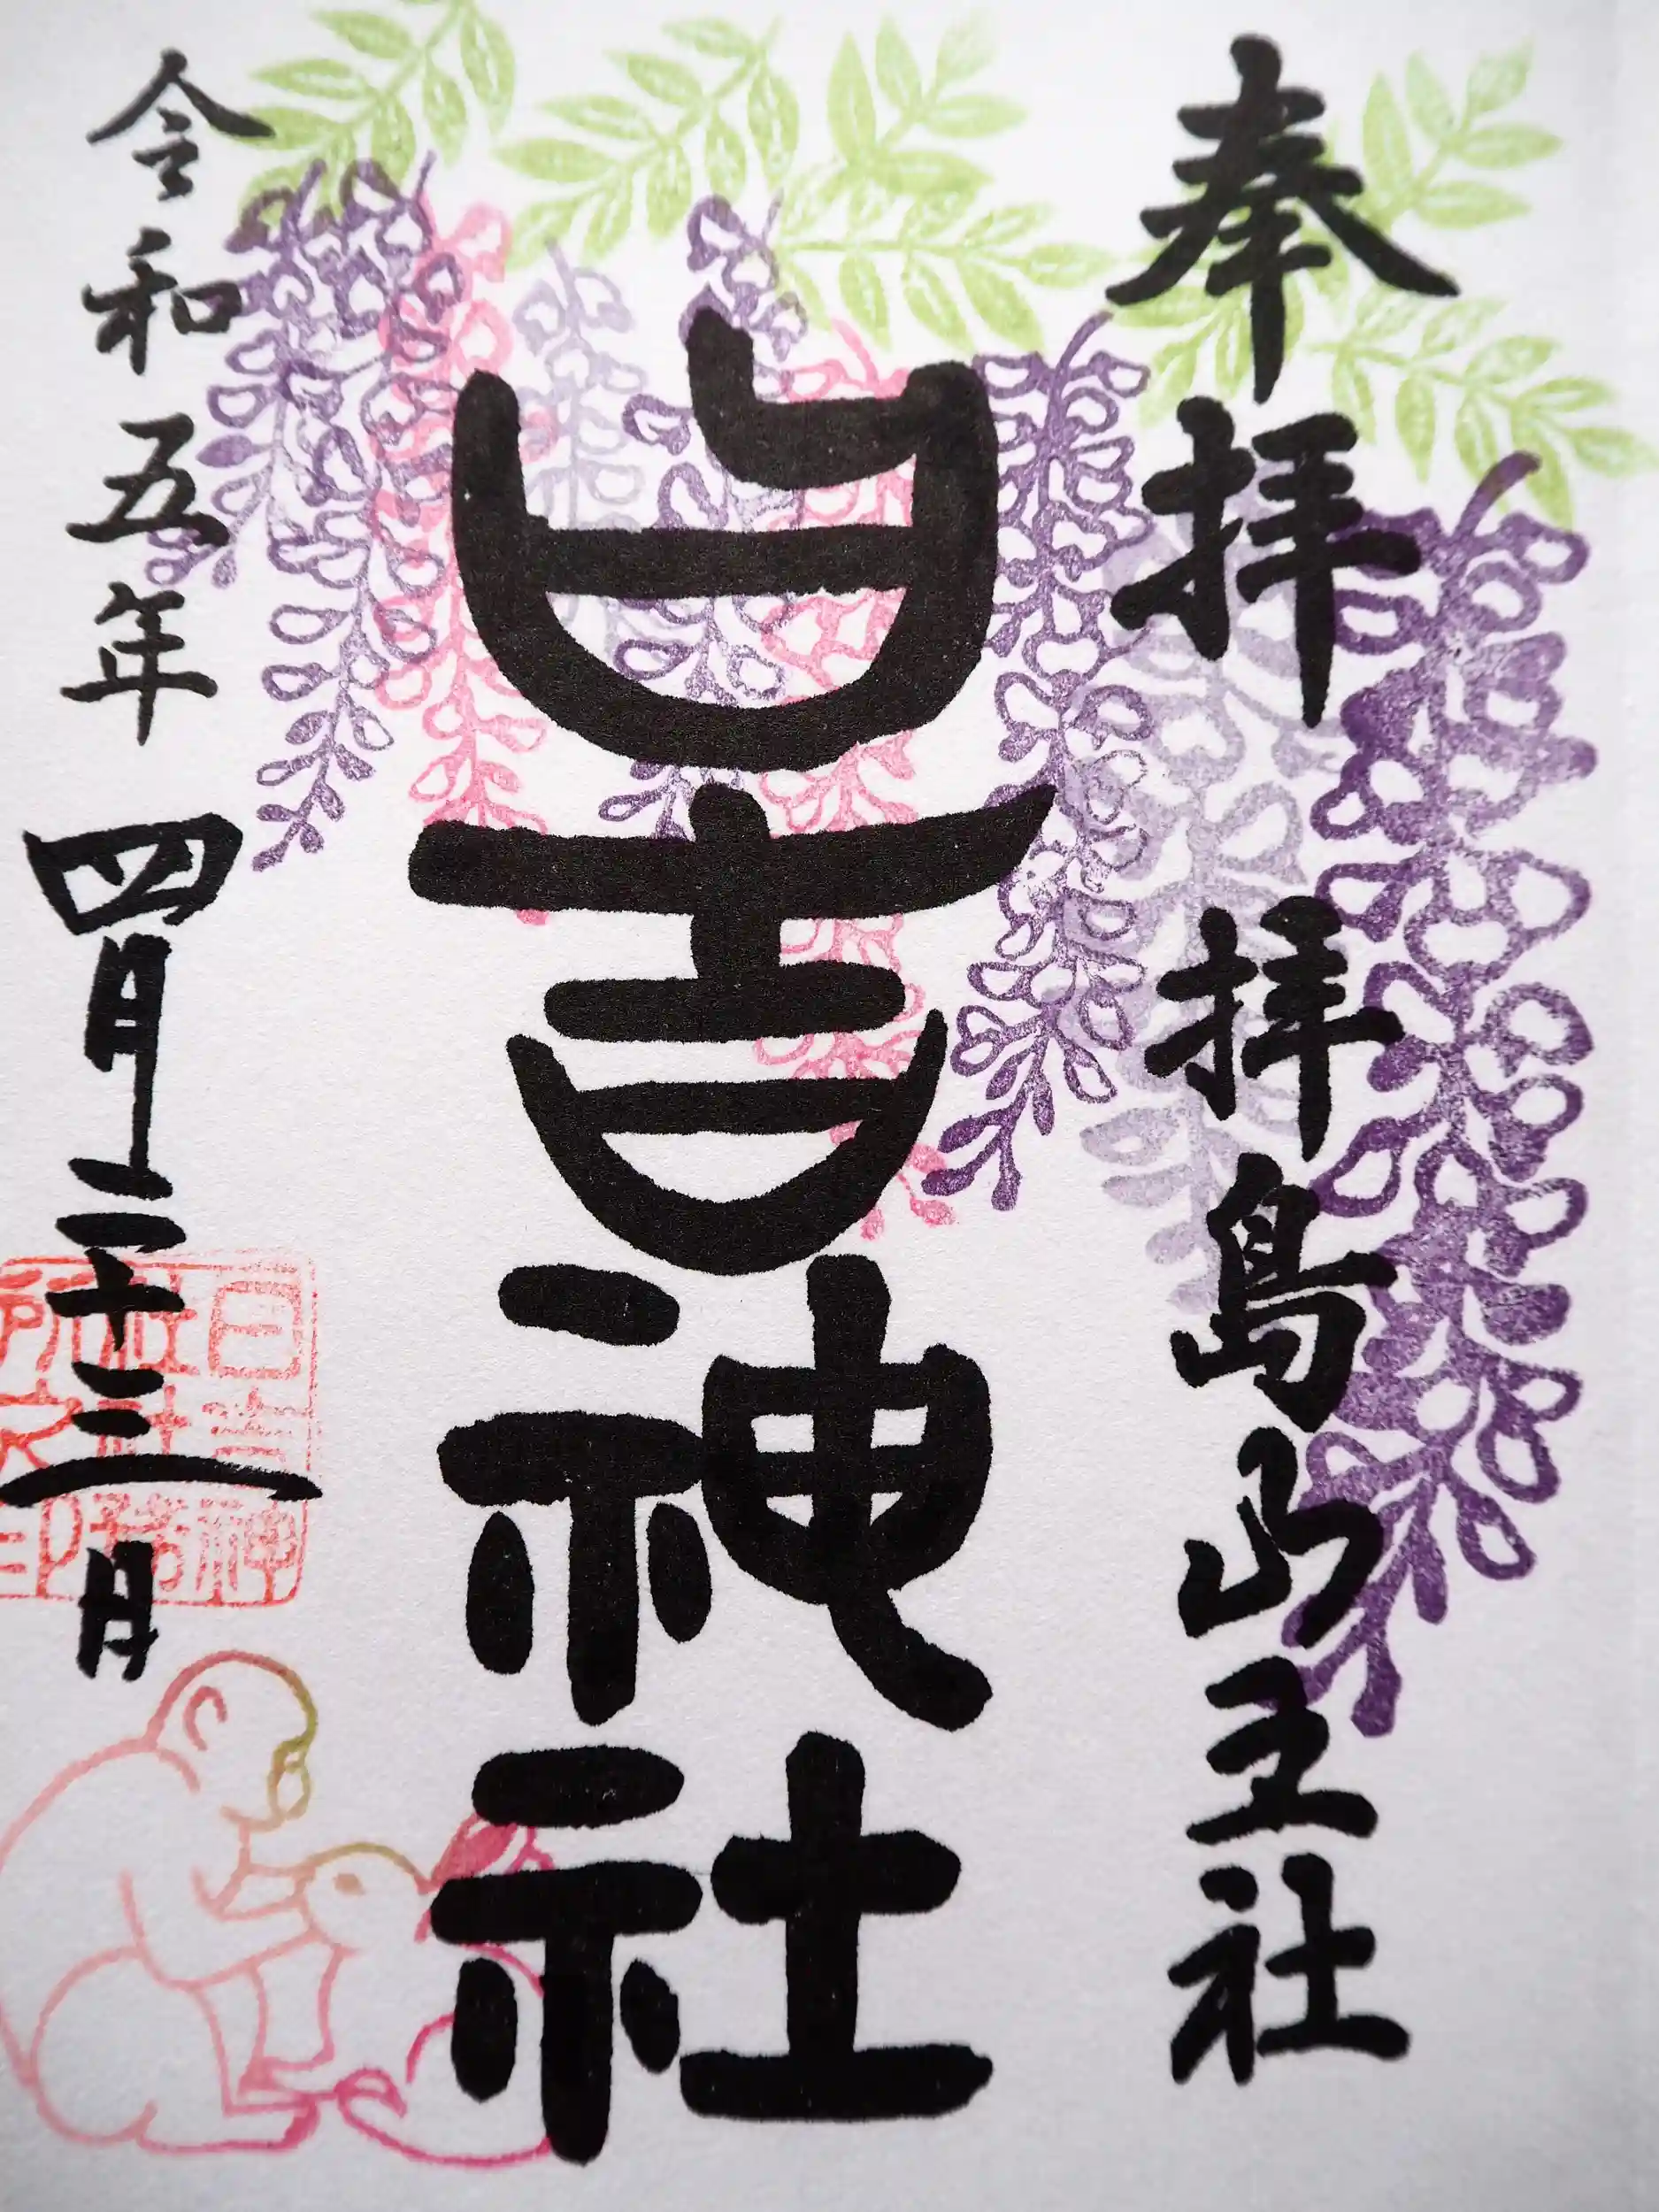 奉拝 拝島山王社
日吉神社
令和五年 四月二十三日
日吉神
社社務
印